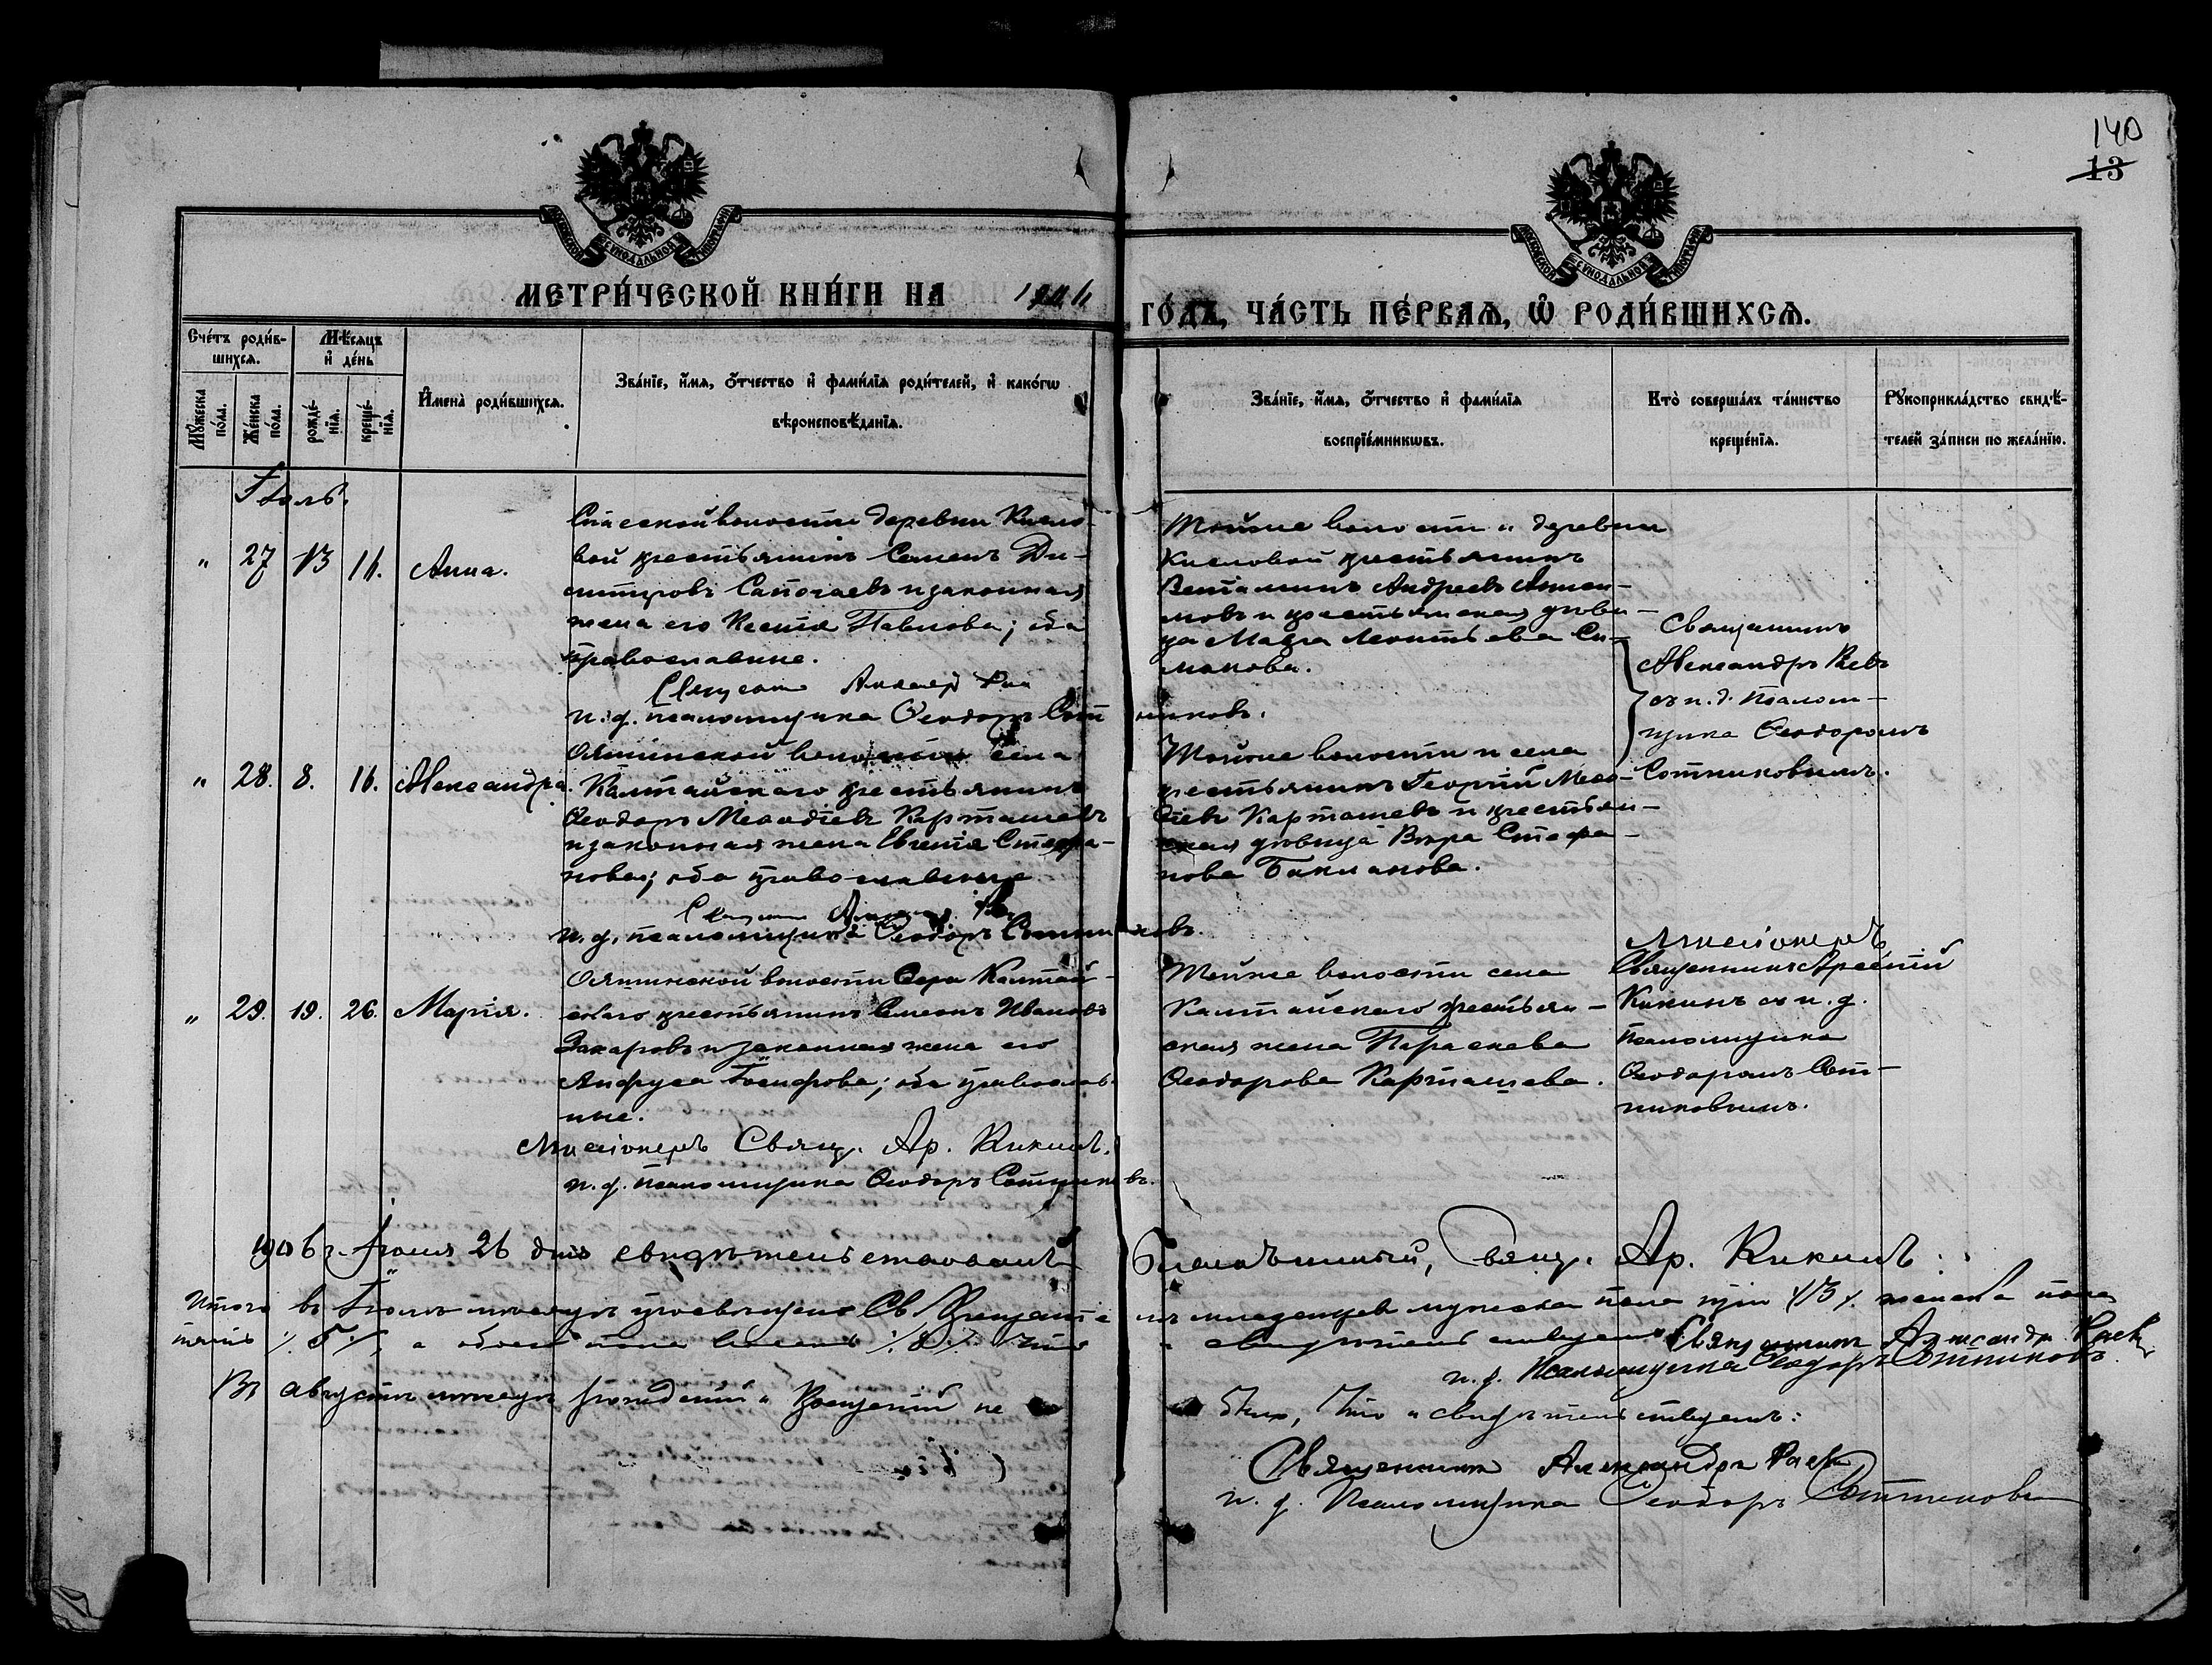 140
13
МОСКОВСКОЙ СѴНОДАЛЬНОЙ ТИПОГРАФІИ
МОСКОВСКОЙ СѴНОДАЛЬНОЙ ТИПОГРАФІИ
МЕТРИ́ЧЕСКОЙ КНИ́ГИ НА 1906
ГО́ДЪ, ЧА́СТЬ ПЕ́РВАЯ, Ѡ РОДИ́ВШИХСЯ.
Сче́тъ роди́вшихся.
Мꙋ́жеска по́ла.
Же́нска по́ла.
Мѣ́сяцъ и҆ де́нь
рожде́нїя.
креще́нїя.
И҆мена̀ роди́вшихся.
Зва́нїе, и҆́мя, ѻ҆́тчество и҆ фами́лїя роди́телей, и҆ како́гѡ
вѣроисповѣ́данїя.
Зва́нїе, и҆́мя, ѻ҆́тчество и҆ фами́лїя
воспрїе́мникѡвъ.
Кто̀ соверша́лъ та́инство
креще́нїя.
Рꙋкоприкла́дство свидѣ́-
телей за́писи по жела́нїю.
Іюль.
" 27 13 16. Анна.
Спасской волости деревни Кисло-
вой крестьянинъ Семенъ Ди-
митріовъ Сапогаевъ и законная
жена его Ксенія Павлова; оба
православные.
и. д. псаломщика Ѳеодоръ Сотниковъ.
Тойже волости и деревни
Кисловой крестьянинъ
Веніаминъ Андреевъ
и крестьянская дѣви-
ца Мавра Леонтьева Си-
макова.
Священникъ
Александръ
съ и. д. псалом-
щика Ѳеодоромъ
Сотниковымъ.
" 28. 8. 16. Александра.
Ояшинской волости села
Калтайскаго крестьянинъ
Ѳеодоръ Меѳодіевъ Карташевъ
и законная жена Евгенія Стефа-
нова; оба православные
и. д. псаломщика Ѳеодоръ Сотниковъ.
Тойже волости и села
крестьянинъ Георгій Меѳо-
діевъ Карташевъ и крестьян-
ская дѣвица Вѣра Стефа-
нова Бакланова.
" 29. 19. 26. Марія.
Ояшинской волости Села Калтай-
скаго крестьянинъ Симеонъ Ивановъ
Захаровъ и законная жена его
Анфуса Іосифова; оба православ-
ные.
Миссіонеръ Свящ. Ар. Кикинъ.
и. д. псаломщика Ѳеодоръ Сотниковъ.
Тойже волости села
Калтайскаго крестьян-
ская жена Параскева
Ѳеодорова Карташева.
Миссіонеръ
Священникъ Арсеній
Кикинъ съ и. д.
псаломщика
Ѳеодоромъ Сот-
никовымъ.
1906 г. Іюля 26 дня свидѣтельствовалъ Благочинный, Свящ. Ар. Кикинъ.
Итого въ Іюлѣ мѣсяцѣ просвѣщено Св. Крещеніемъ младенцевъ мужеска пола три /3/. женска пола
пять /5/, а обоего пола восемь /8/. Что и свидѣтельствуемъ Священникъ Александръ
и. д. Псаломщика Ѳеодоръ Сотниковъ.
Въ августѣ мѣсяцѣ рожденій и крещеній не было, что и свидѣтельствуемъ:
Священникъ Александръ
и. д. Псаломщика Ѳеодоръ Сотниковъ